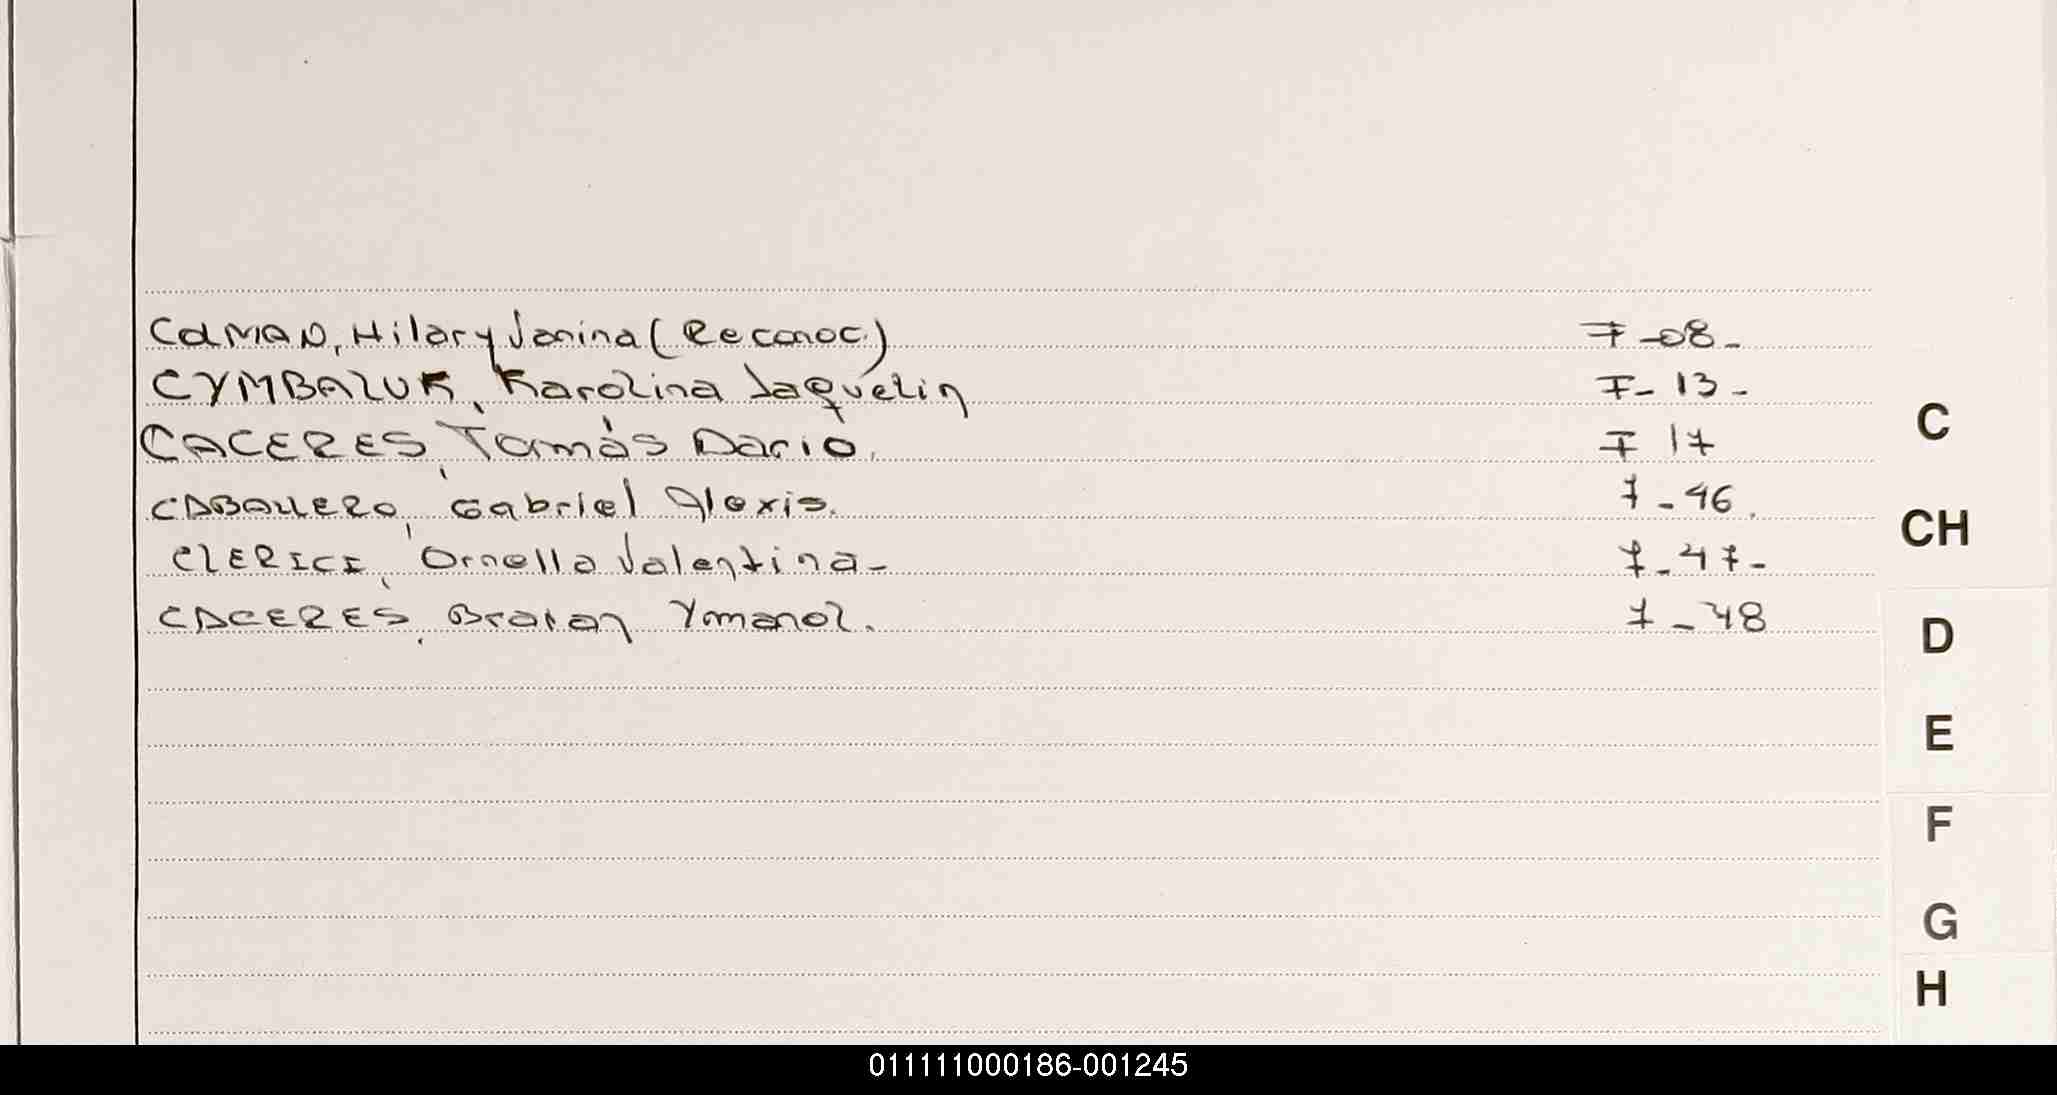 COLMAN, Hilary Janina (Reconoc.) 7-08-
CYMBALUK, Karolina Jaquelin 7-13-
CACERES, Tomás Dario. 7 17
CABALLERO, Gabriel Alexis. 7-46.
CLERICI, Ornella Valentina- 7-47-
CACERES, Braian Ymanol. 7-48
C
CH
D
E
F
G
H
011111000186-001245